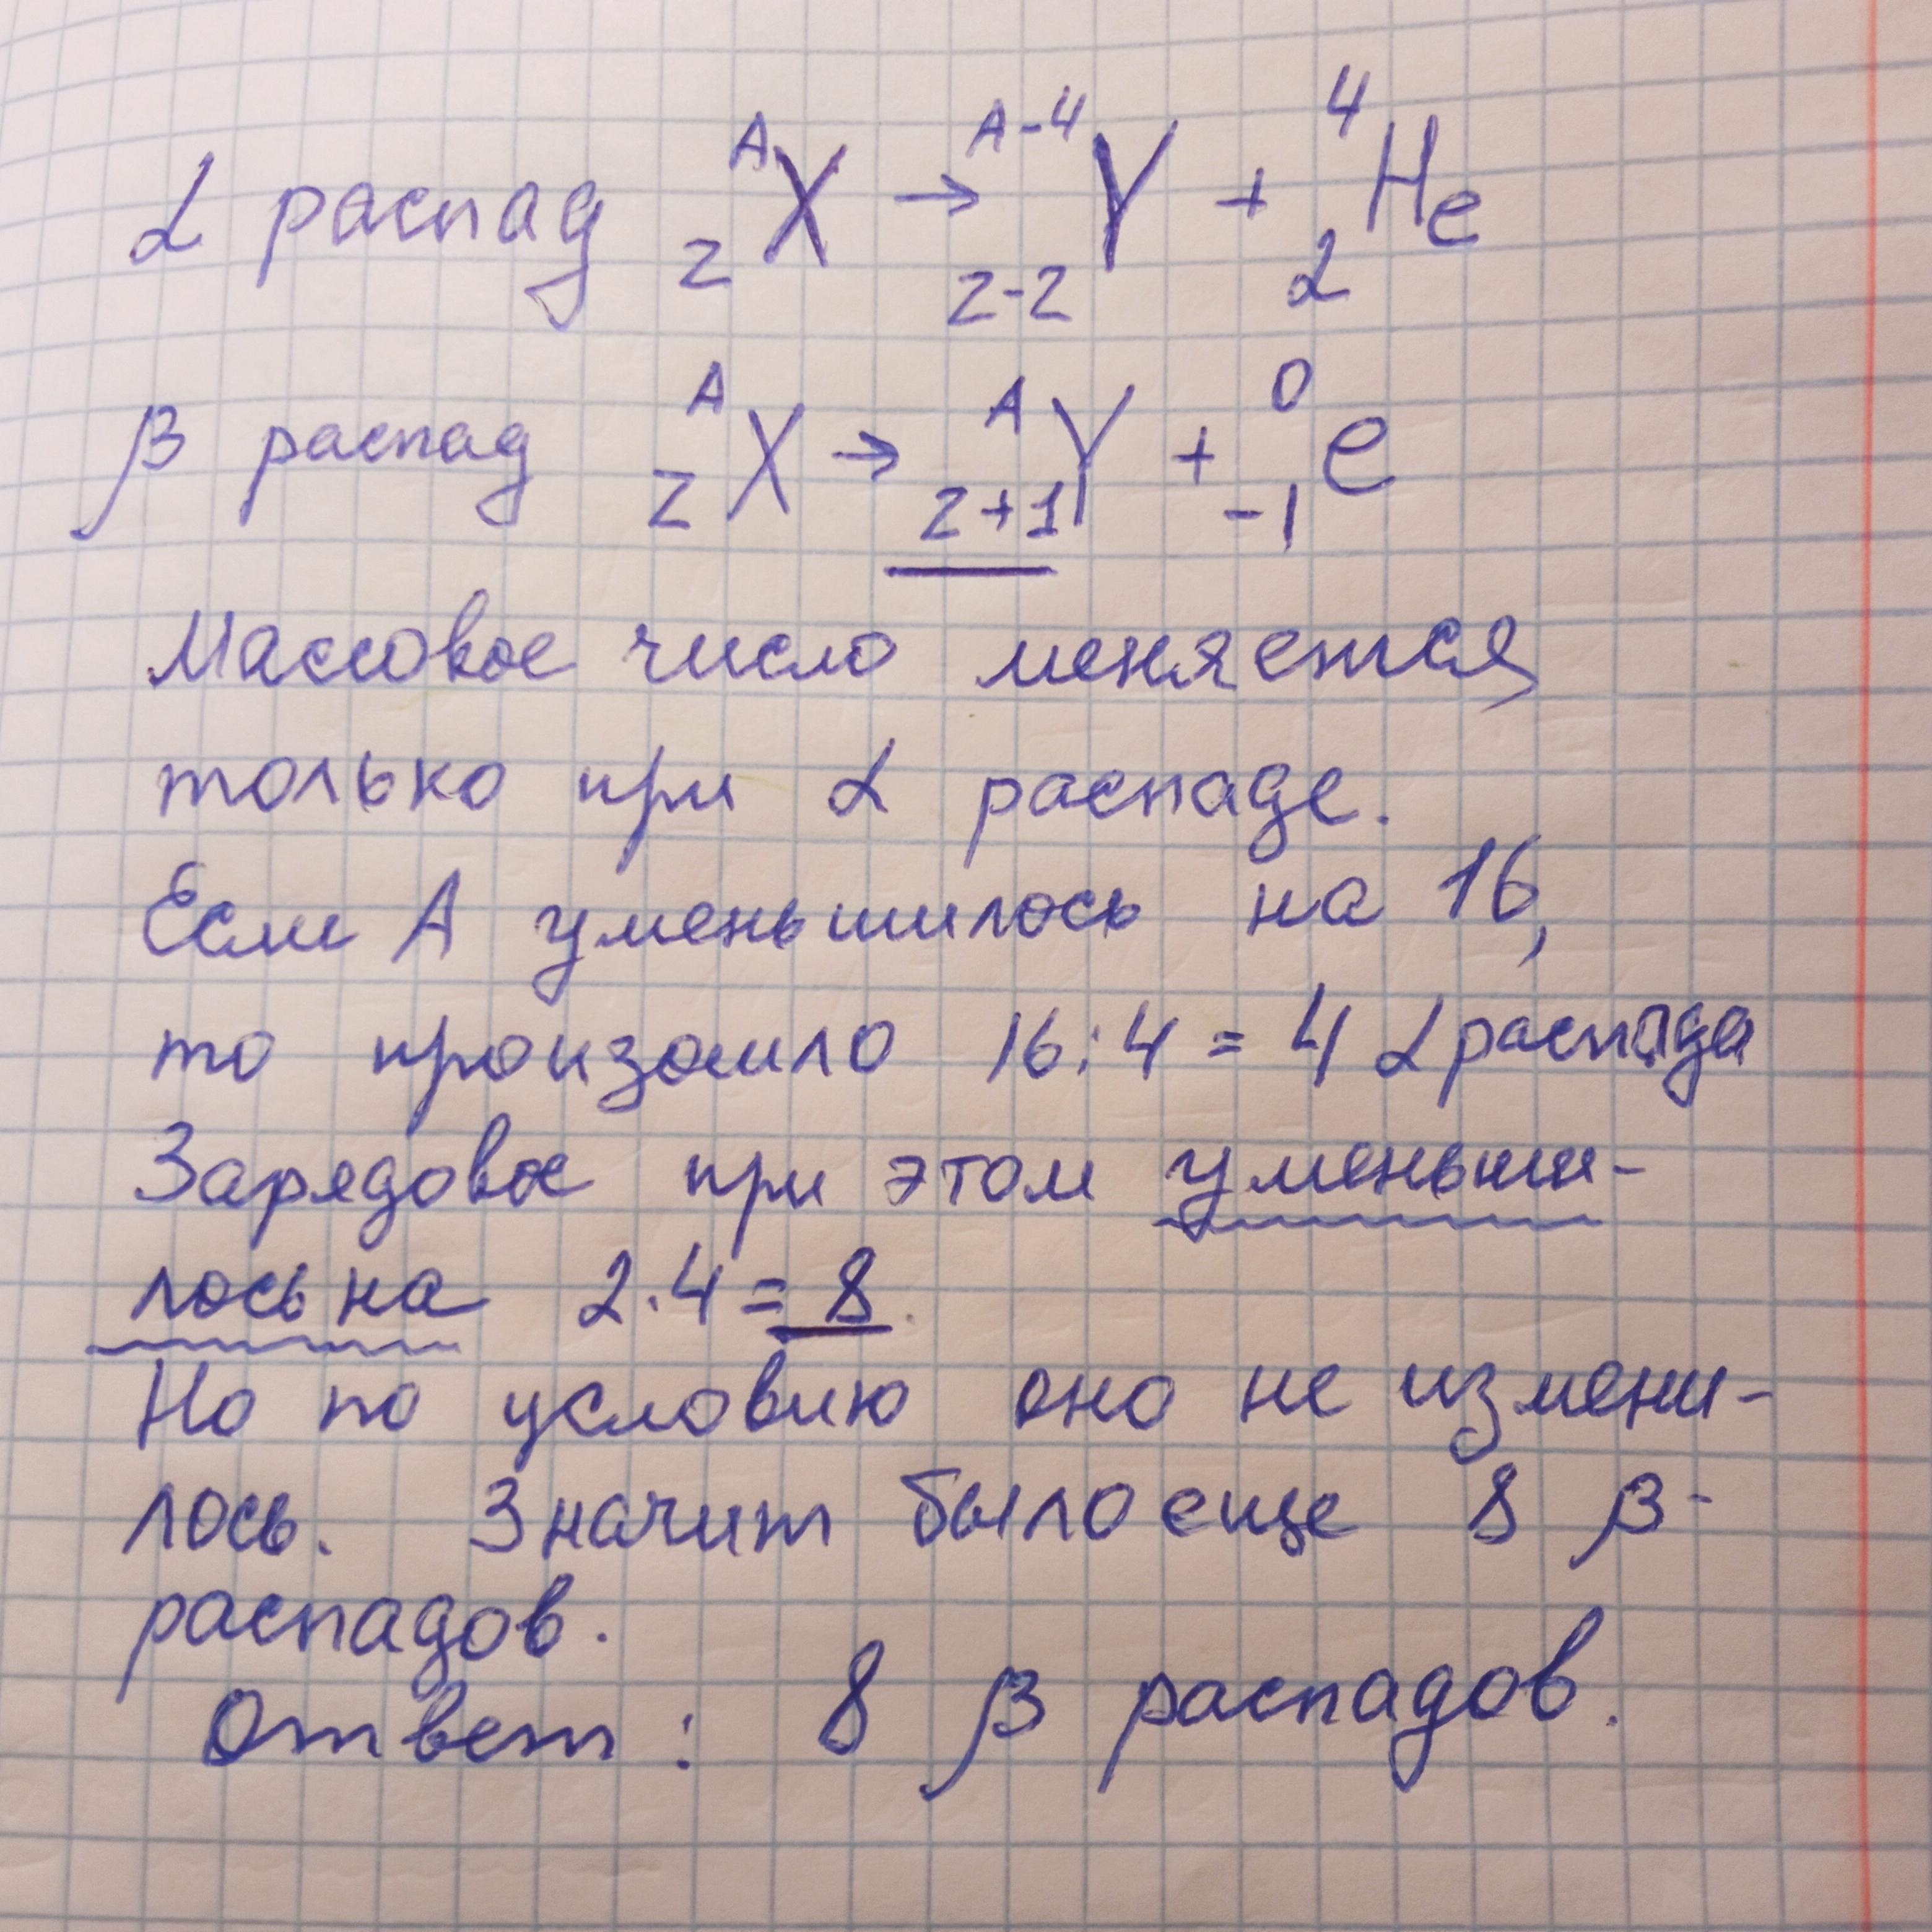 α распад ᴬ_Z X → ᴬ⁻⁴_Z-2 Y + ⁴_2 He
β распад ᴬ_Z X → ᴬ_Z+1 Y + ⁰_-1 e
Массовое число меняется
только при α распаде.
Если А уменьшилось на 16,
то произошло 16:4=4 α распада
Зарядовое при этом уменьши-
лось на 2·4=8.
Но по условию оно не измени-
лось. Значит было еще 8 β-
распадов.
Ответ: 8 β распадов.